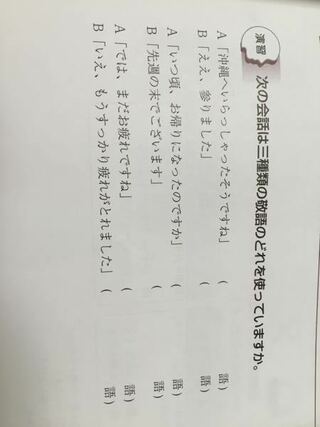 演習
次の会話は三種類の敬語のどれを使っていますか。
A「沖縄へいらっしゃったそうですね」（　　　　語）
B「ええ、参りました」（　　　　語）
A「いつ頃、お帰りになったのですか」（　　　　語）
B「先週の末でございます」（　　　　語）
A「では、まだお疲れですね」（　　　　語）
B「いえ、もうすっかり疲れがとれました」（　　　　語）